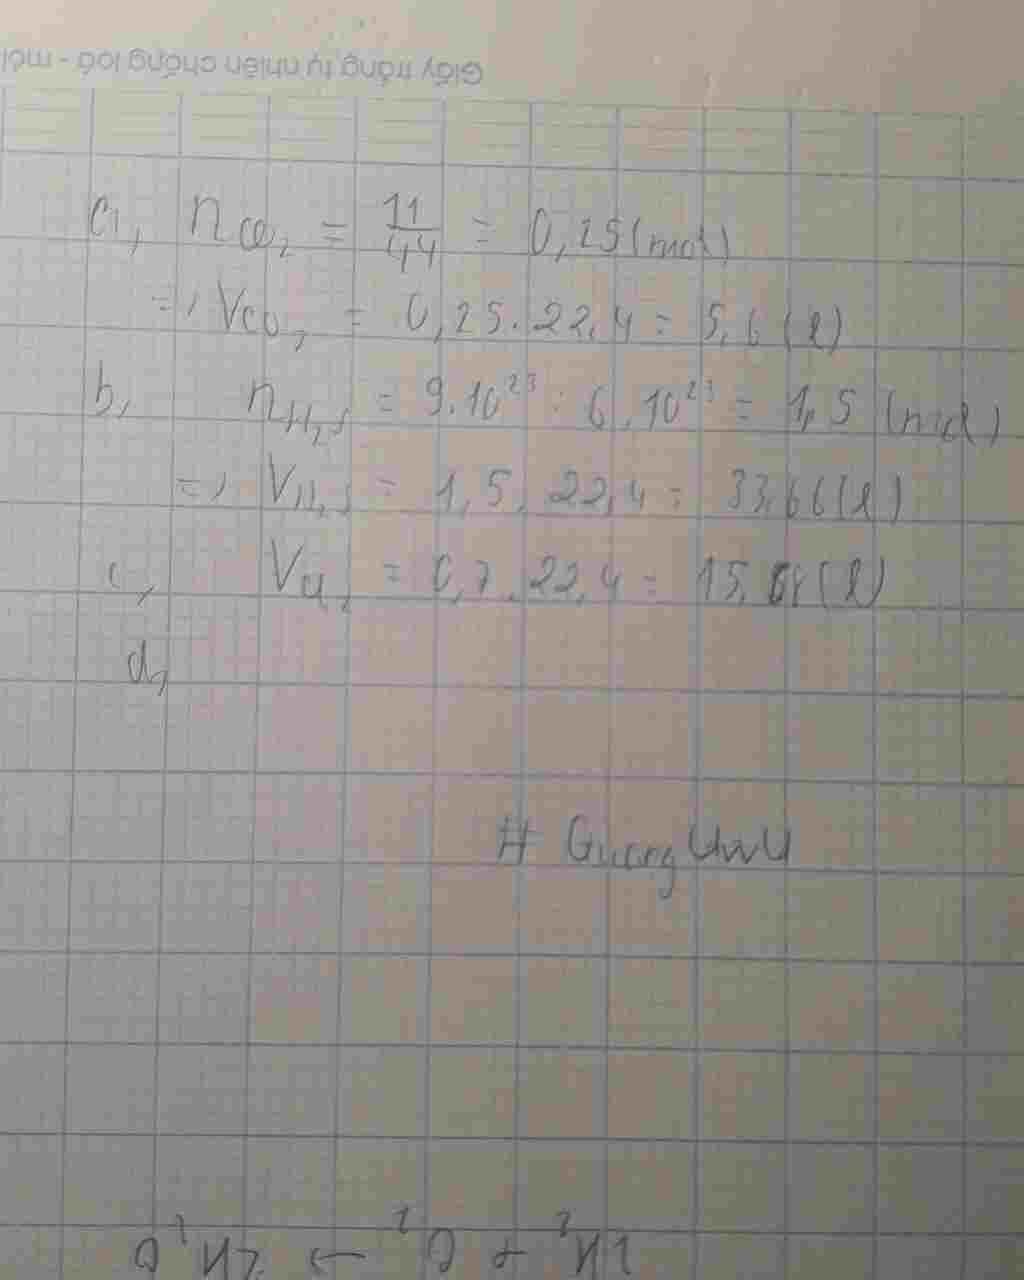 Giấy trắng tự nhiên chống loá - mỏi
a, nCO₂ = 11/44 = 0,25 (mol)
=> VCO₂ = 0,25.22,4 = 5,6 (l)
b, nH₂S = 9.10²³ : 6.10²³ = 1,5 (mol)
=> VH₂S = 1,5.22,4 = 33,66 (l)
c, = 0,7.22,4 = 15,68 (l)
d,
# QuangUwU
2H₂ + O₂ → 2H₂O